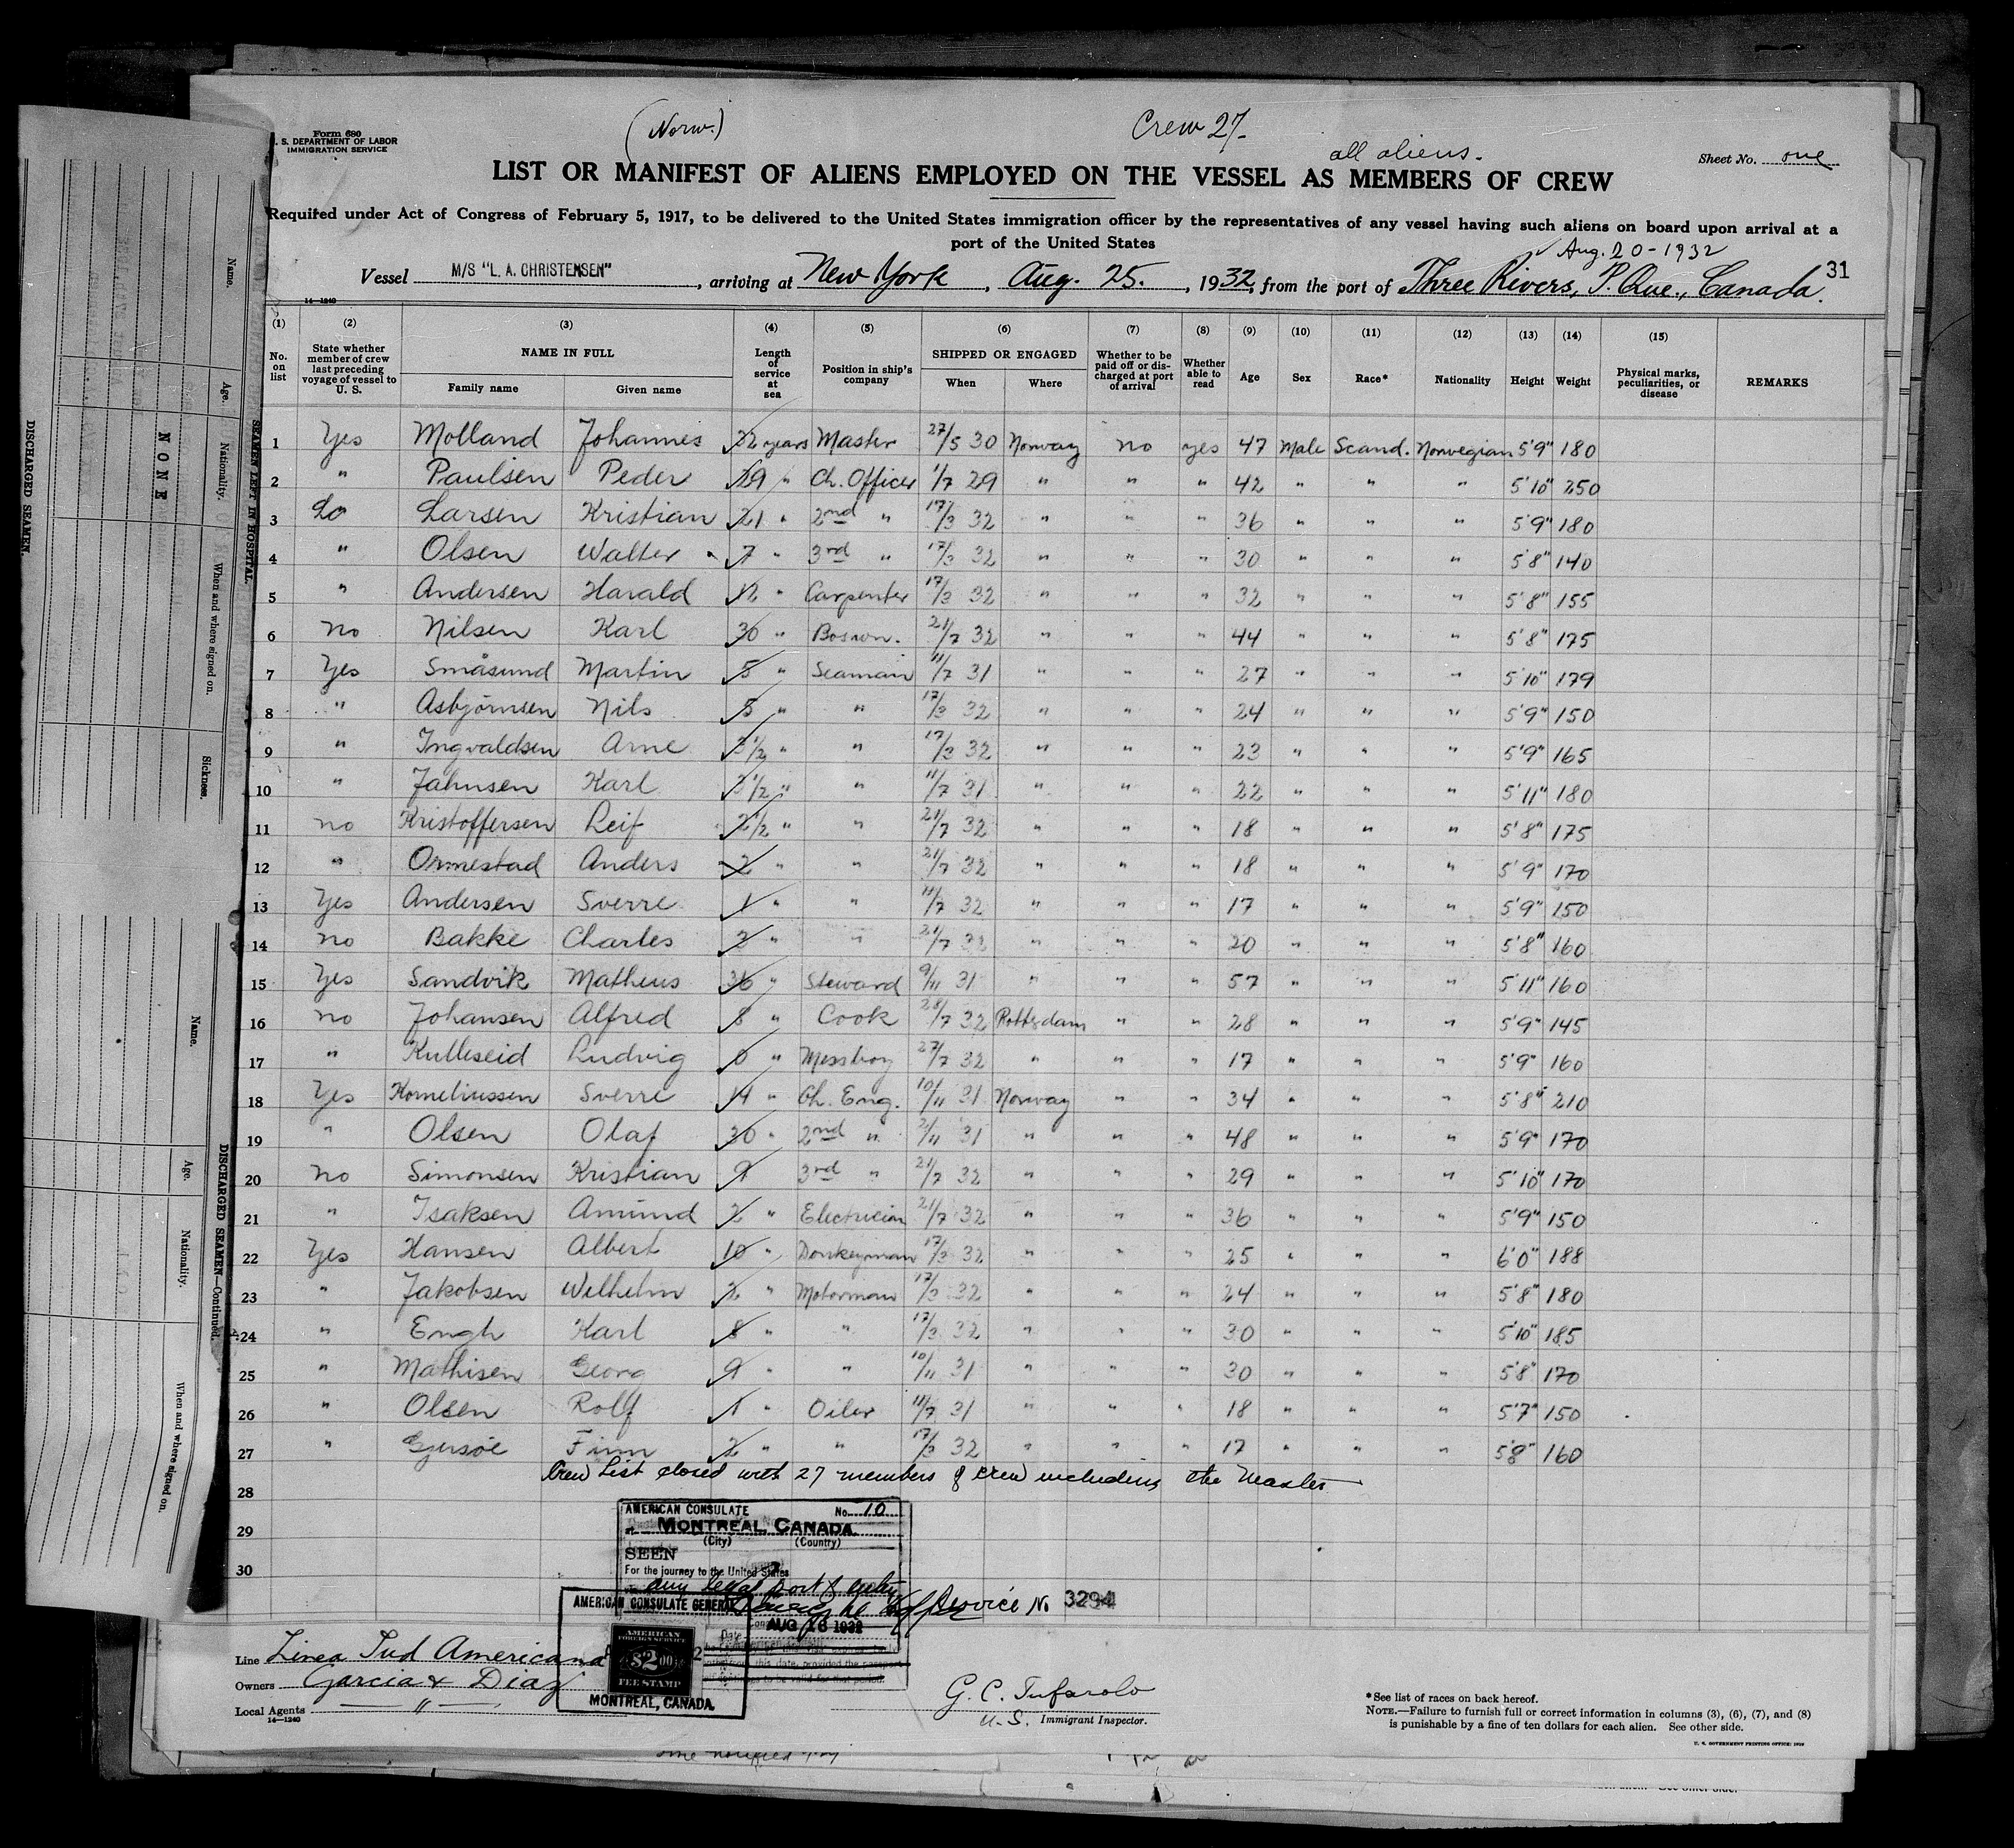 Form 680
U. S. DEPARTMENT OF LABOR
IMMIGRATION SERVICE
(Norw.)
Crew 27.
all aliens.
Sheet No. one
LIST OR MANIFEST OF ALIENS EMPLOYED ON THE VESSEL AS MEMBERS OF CREW
Required under Act of Congress of February 5, 1917, to be delivered to the United States immigration officer by the representatives of any vessel having such aliens on board upon arrival at a
port of the United States
Aug. 20-1932
Vessel M/S "L. A. CHRISTENSEN", arriving at New York, Aug. 25., 1932, from the port of Three Rivers, P. Que., Canada. 31
14-1240
(1) (2) (3) (4) (5) (6) (7) (8) (9) (10) (11) (12) (13) (14) (15)
No. on list
State whether member of crew last preceding voyage of vessel to U. S.
NAME IN FULL
Family name Given name
Length of service at sea
Position in ship's company
SHIPPED OR ENGAGED
When Where
Whether to be paid off or discharged at port of arrival
Whether able to read
Age Sex Race* Nationality Height Weight
Physical marks, peculiarities, or disease
REMARKS
1 Yes Molland Johannes 32 years Master 27/5 30 Norway no yes 47 Male Scand. Norwegian 5'9" 180
2 " Paulsen Peder 29 " Ch. Officer 1/7 29 " " " 42 " " " 5'10" 250
3 Do Larsen Kristian 21 " 2nd " 17/3 32 " " " 36 " " " 5'9" 180
4 " Olsen Walter 7 " 3rd " 17/3 32 " " " 30 " " " 5'8" 140
5 " Andersen Harald 12 " Carpenter 17/3 32 " " " 32 " " " 5'8" 155
6 no Nilsen Karl 30 " Boswn. 21/7 32 " " " 44 " " " 5'8" 175
7 Yes Småsund Martin 5 " Seaman 11/7 31 " " " 27 " " " 5'10" 179
8 " Asbjørnsen Nils 5 " " 17/3 32 " " " 24 " " " 5'9" 150
9 " Ingvaldsen Arne 3 1/2 " " 17/3 32 " " " 23 " " " 5'9" 165
10 " Jahnsen Karl 3 1/2 " " 11/7 31 " " " 22 " " " 5'11" 180
11 no Kristoffersen Leif 2 1/2 " " 21/7 32 " " " 18 " " " 5'8" 175
12 " Ormestad Anders 2 " " 21/7 32 " " " 18 " " " 5'9" 170
13 Yes Andersen Sverre 1 " " 11/7 32 " " " 17 " " " 5'9" 150
14 no Bakke Charles 2 " " 21/7 32 " " " 20 " " " 5'8" 160
15 Yes Sandvik Matheus 36 " Steward 9/11 31 " " " 57 " " " 5'11" 160
16 no Johansen Alfred 8 " Cook 28/7 32 Rotterdam " " 28 " " " 5'9" 145
17 " Kulleseid Ludvig 0 " Messboy 27/7 32 " " " 17 " " " 5'9" 160
18 Yes Korneliussen Sverre 14 " Ch. Eng. 10/11 31 Norway " " 34 " " " 5'8" 210
19 " Olsen Olaf 30 " 2nd " 2/11 31 " " " 48 " " " 5'9" 170
20 no Simonsen Kristian 9 3rd " 21/7 32 " " " 29 " " " 5'10" 170
21 " Isaksen Amund 2 " Electrician 21/7 32 " " " 36 " " " 5'9" 150
22 Yes Hansen Albert 10 " Donkeyman 17/3 32 " " " 25 " " " 6'0" 188
23 " Jakobsen Wilhelm 2 " Motorman 17/3 32 " " " 24 " " " 5'8" 180
24 " Engh Karl 8 " " 17/3 32 " " " 30 " " " 5'10" 185
25 " Mathisen Georg 9 " " 10/11 31 " " " 30 " " " 5'8" 170
26 " Olsen Rolf 1 " Oiler 11/7 31 " " " 18 " " " 5'7" 150
27 " Gjersøe Finn 2 " " 17/3 32 " " " 17 " " " 5'8" 160
Crew List closed with 27 members of crew including the Master
28
29
30
AMERICAN CONSULATE No. 10
MONTREAL, CANADA.
(City) (Country)
SEEN
For the journey to the United States
any legal port of entry
AMERICAN CONSULATE GENERAL
Service No 3294
AUG 16 1932
Date
AMERICAN
FOREIGN SERVICE
$2.00
FEE STAMP
MONTREAL, CANADA.
Line Linea Sud Americana
Owners Garcia & Diaz
Local Agents "
14-1240
G. C. Tufarolo
U. S. Immigrant Inspector.
*See list of races on back hereof.
NOTE.—Failure to furnish full or correct information in columns (3), (6), (7), and (8)
is punishable by a fine of ten dollars for each alien. See other side.
U. S. GOVERNMENT PRINTING OFFICE
DISCHARGED SEAMEN.
SEAMEN LEFT IN HOSPITAL.
Name. Age. Nationality. When and where signed on. Sickness.
NONE
DISCHARGED SEAMEN—Continued.
Name. Age. Nationality. When and where signed on.